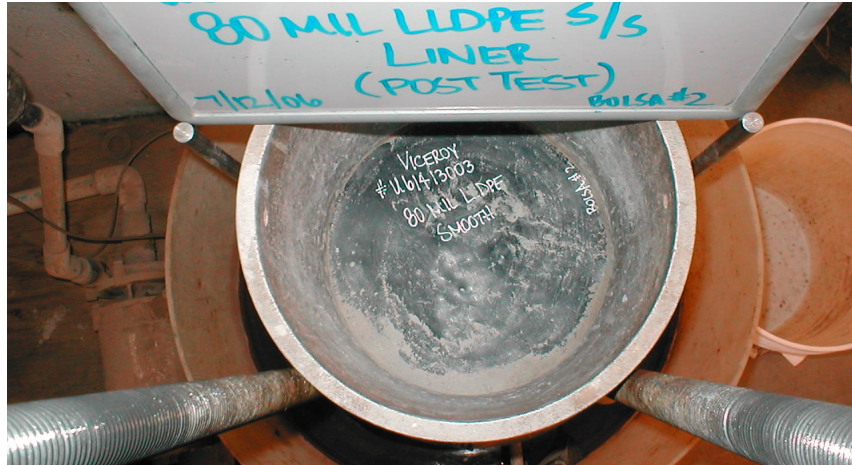 80 MIL LLDPE S/S
LINER
(POST TEST)
7/12/06
BOLSA #2
VICEROY
80 MIL LLDPE
SMOOTH
BOLSA #2